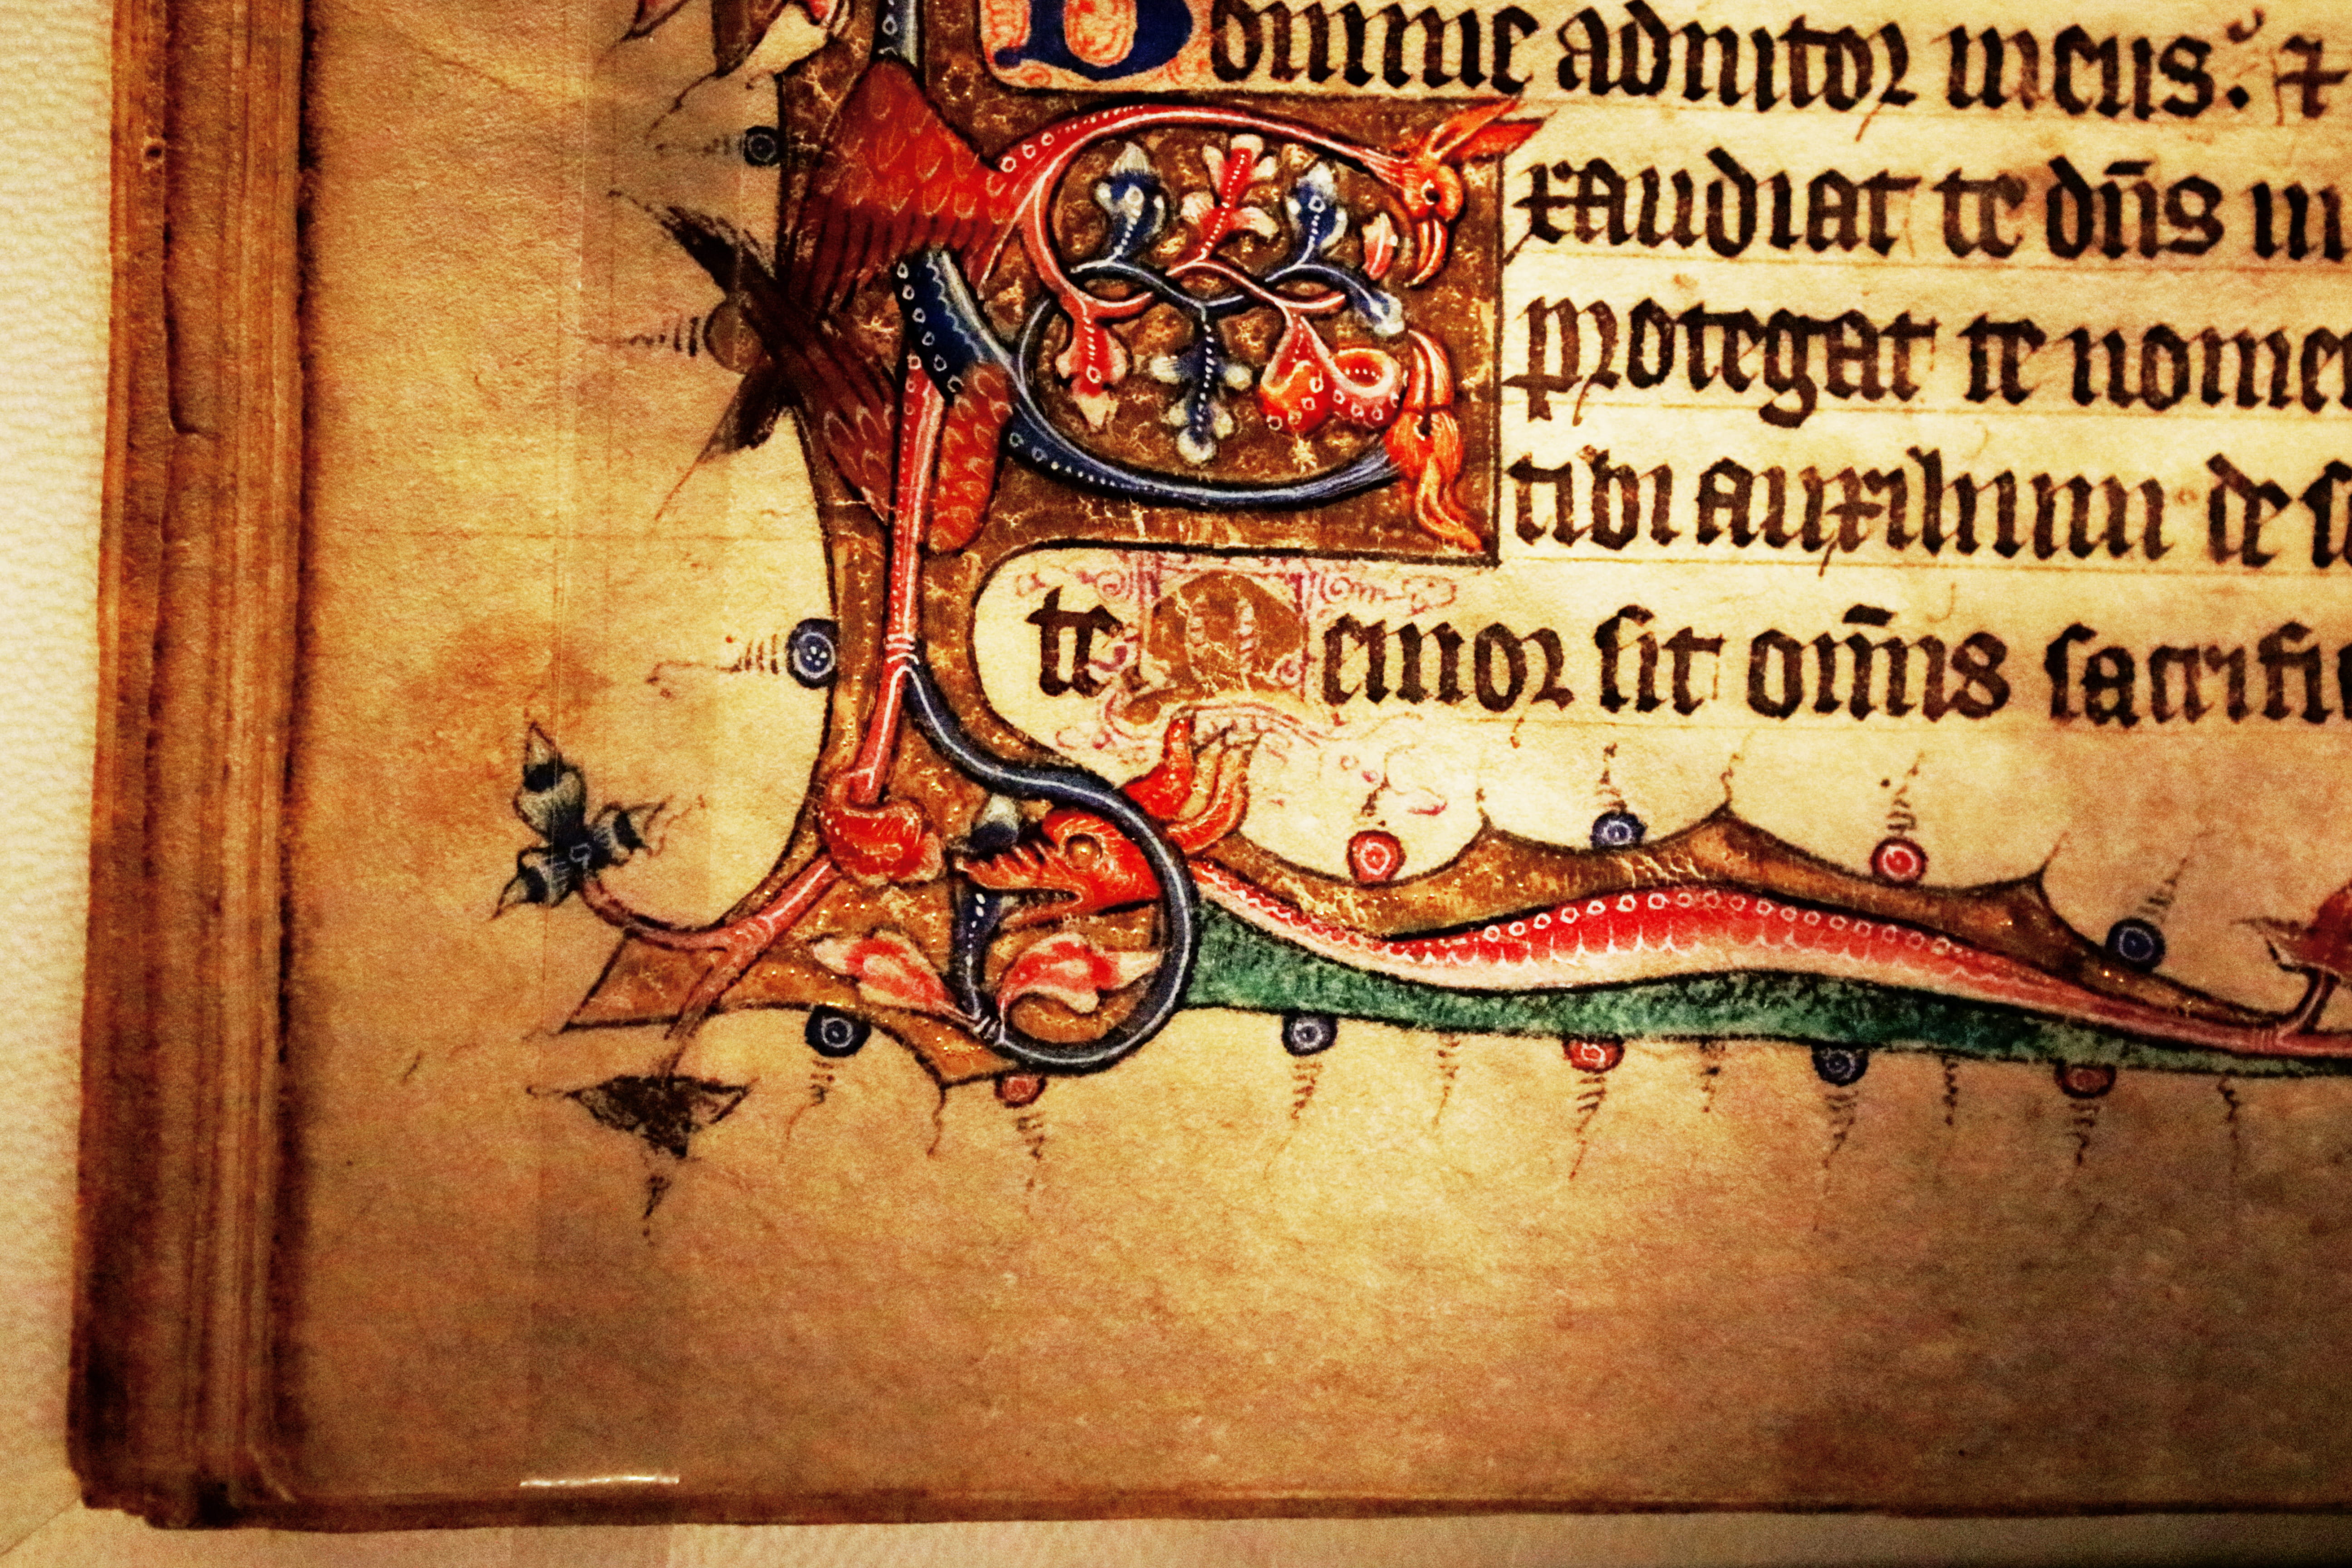 Domine adiutor meus: ⁊
Exaudiat te dn̄s in
protegat te nome
tibi auxilium de s
te Memor sit om̄is sacrifi